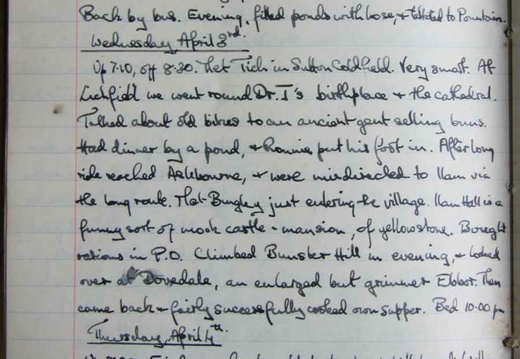 Back by bus. Evening, filled ponds with hose, & talked to Pountain.
Wednesday April 3rd.
Up 7.10, off 8.30. Met Rich in Sutton Coldfield. Very smart. At
Lichfield we went round Dr. J's birthplace & the cathedral.
Talked about old bikes to an ancient gent selling buns.
Had dinner by a pond, & Ronnie put his foot in. After long
ride reached Ashbourne, & were misdirected to Ilam via
the long route. Met Bungley just entering the village. Ilam Hall is a
funny sort of mock castle-mansion, of yellow stone. Bought
rations in P.O. Climbed Bunster Hill in evening, & looked
over at Dovedale, an enlarged but grimmer Then
came back & fairly successfully cooked own supper. Bed 10.00 pm
Thursday April 4th.